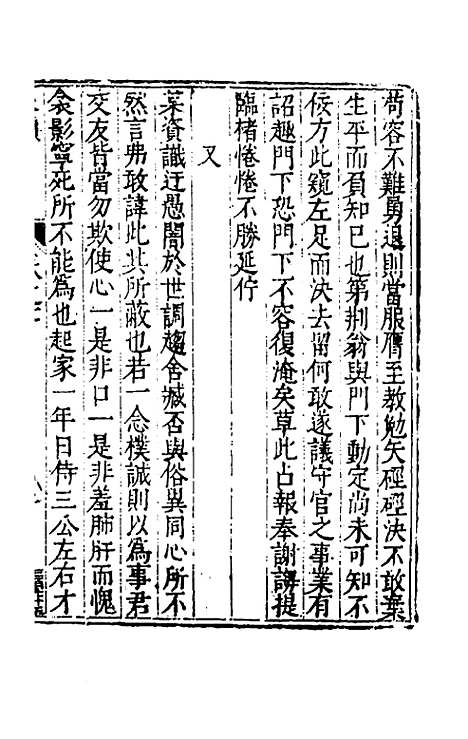 苟容不難勇退則當服膺至教勉矢硜硜決不敢棄
生平而負知己也第荆翁與門下動定尚未可知不
佞方此窺左足而決去留何敢遂議守官之事業有
詔趣門下恐門下不容復淹矣草此占報奉謝誨提
臨楮惓惓不勝延佇
又
某資識迂愚闇於世調趨舍臧否與俗異同心所不
然言弗敢諱此其所蔽也若一念樸誠則以為事君
交友皆當勿欺使心一是非口一是非羞肺肝而愧
衾影寧死所不能為也起家一年日侍三公左右才